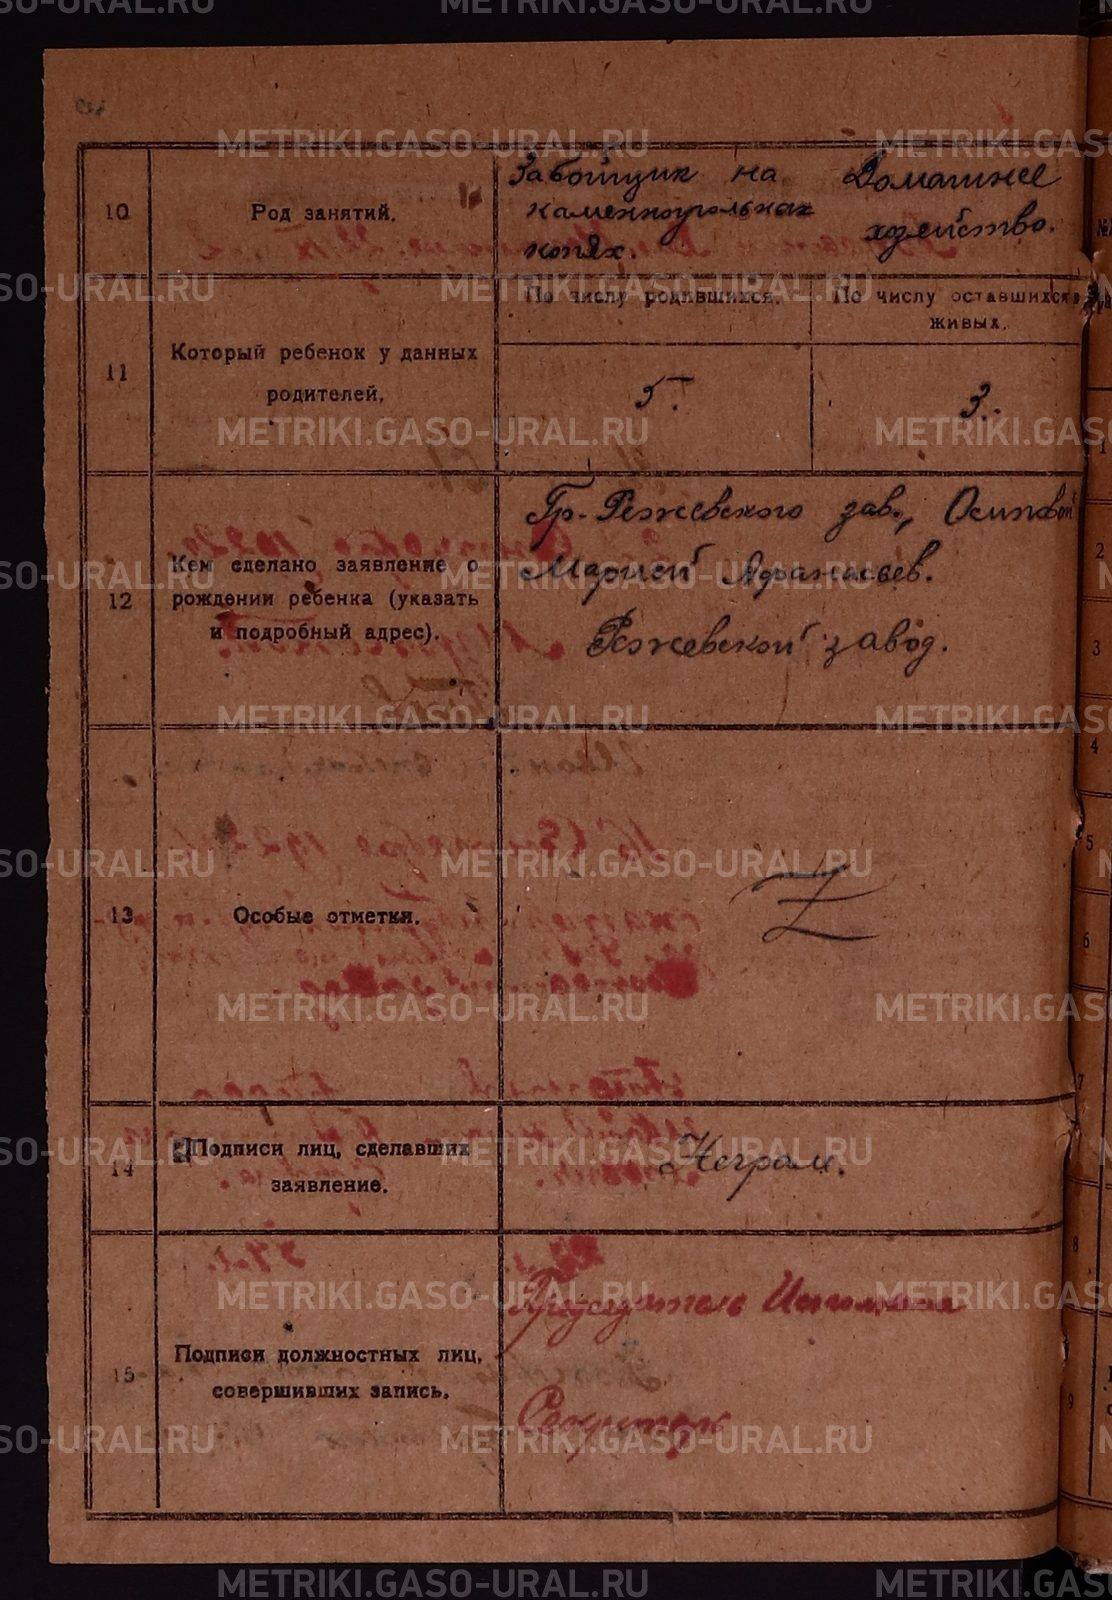 10
Род занятий.
Забойщик на
каменноугольных
копях.
Домашнее
хозяйство.
11
Который ребенок у данных
родителей.
По числу родившихся.
5.
По числу оставшихся
живых.
3.
12
Кем сделано заявление о
рождении ребенка (указать
и подробный адрес).
Гр. Режевского зав., Осиповой
Марией Афанасьев.
Режевской завод.
13
Особые отметки.
Z
14
Подписи лиц, сделавших
заявление.
Неграм.
15
Подписи должностных лиц,
совершивших запись.
Председатель Исполкома
Секретарь
METRIKI.GASO-URAL.RU